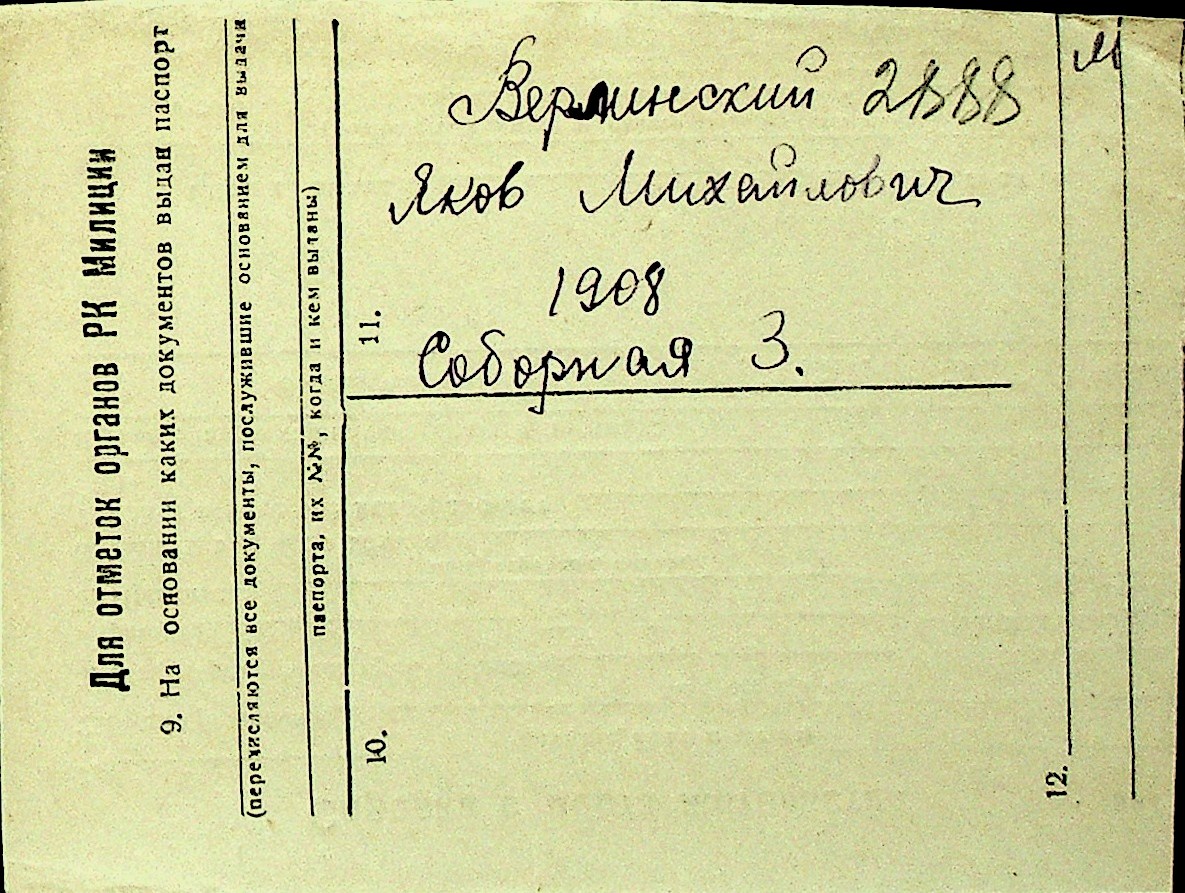 Для отметок органов РК Милиции
9. На основании каких документов выдан паспорт
(перечисляются все документы, послужившие основанием для выдачи
паспорта, их №№, когда и кем выданы)
10.
11.
2888
Яков Михайлович
1908
Соборная 3.
12.
М